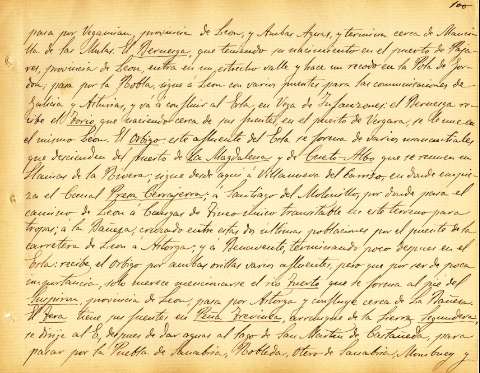 100
pasa por Vegamian, provincia de Leon, y Ambas Aguas, y termina cerca de Mansi-
lla de las Mulas. El Bernesga, que teniendo su nacimiento en el puerto de Paja-
res, provincia de Leon, entra en un estrecho valle y hace un recodo en la Pola de Gor-
don, pasa por la Robla, sigue a Leon con varios puentes para las comunicaciones de
Galicia y Asturias, y va á confluir al Esla, en Vega de Infanzones: el Bernesga re-
cibe el Torio que naciendo cerca de sus fuentes en el puerto de Vegara, se le une en
el mismo Leon. El Orbigo: este afluente del Esla se forma de varios manantiales
que descienden del puerto de la Magdalena y de Cueto-Albo que se reunen en
Llamas de la Rivera; sigue desde aqui á Villanueva del Carrizo, en donde empie-
za el Canal Presa Cerrajera; á Santiago del Molinillo, por donde pasa el
camino de Leon a Cangas de Tineo unico transitable en este terreno para
tropas; a la Bañeza, cruzando entre estas dos ultimas poblaciones por el puente de la
carretera de Leon a Astorga; y á Benavente, terminando poco despues en el
Esla: recibe el Orbigo por ambas orillas varios afluentes, pero que por ser de poca
importancia, solo merece mencionarse el rio Tuerto que se forma al pié del
provincia de Leon, pasa por Astorga y confluye cerca de La Bañeza.
El Tera tiene sus fuentes en Peña Trevinca, arranque de la Sierra Segundera,
se dirije al E, despues de dar aguas al lago de San Martin de Castañeda, para
pasar por la Puebla de Sanabria, Robleda, Otero de Sanabria, Mombuey y